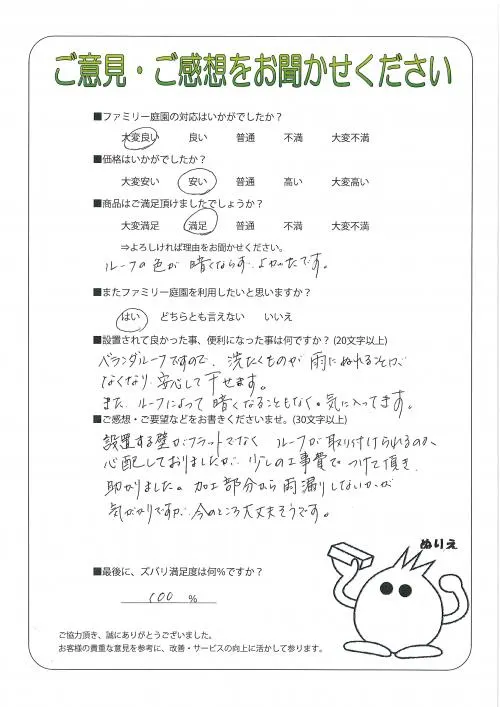 ご意見・ご感想をお聞かせください
■ファミリー庭園の対応はいかがでしたか？
大変良い 良い 普通 不満 大変不満
■価格はいかがでしたか？
大変安い 安い 普通 高い 大変高い
■商品はご満足頂けましたでしょうか？
大変満足 満足 普通 不満 大変不満
⇒よろしければ理由をお聞かせください。
ルーフの色が 暗くならず よかったです。
■またファミリー庭園を利用したいと思いますか？
はい どちらとも言えない いいえ
■設置されて良かった事、便利になった事は何ですか？(20文字以上)
ベランダルーフですので、洗たくものが 雨にぬれる
なくなり 安心して 干せます。
また、ルーフによって 暗くなることもなく。気に入ってます。
■ご感想・ご要望などをお書きくださいませ。(30文字以上)
設置する壁がフラットでなく ルーフが 取り付けられるのか、
心配しておりましたが、少しの工事費で つけて頂き、
助かりました。加工部分から雨漏りしないかが
気がかりですが、今のところ大丈夫そうです。
ぬりえ
■最後に、ズバリ満足度は何%ですか？
100 %
ご協力頂き、誠にありがとうございました。
お客様の貴重な意見を参考に、改善・サービスの向上に活かして参ります。